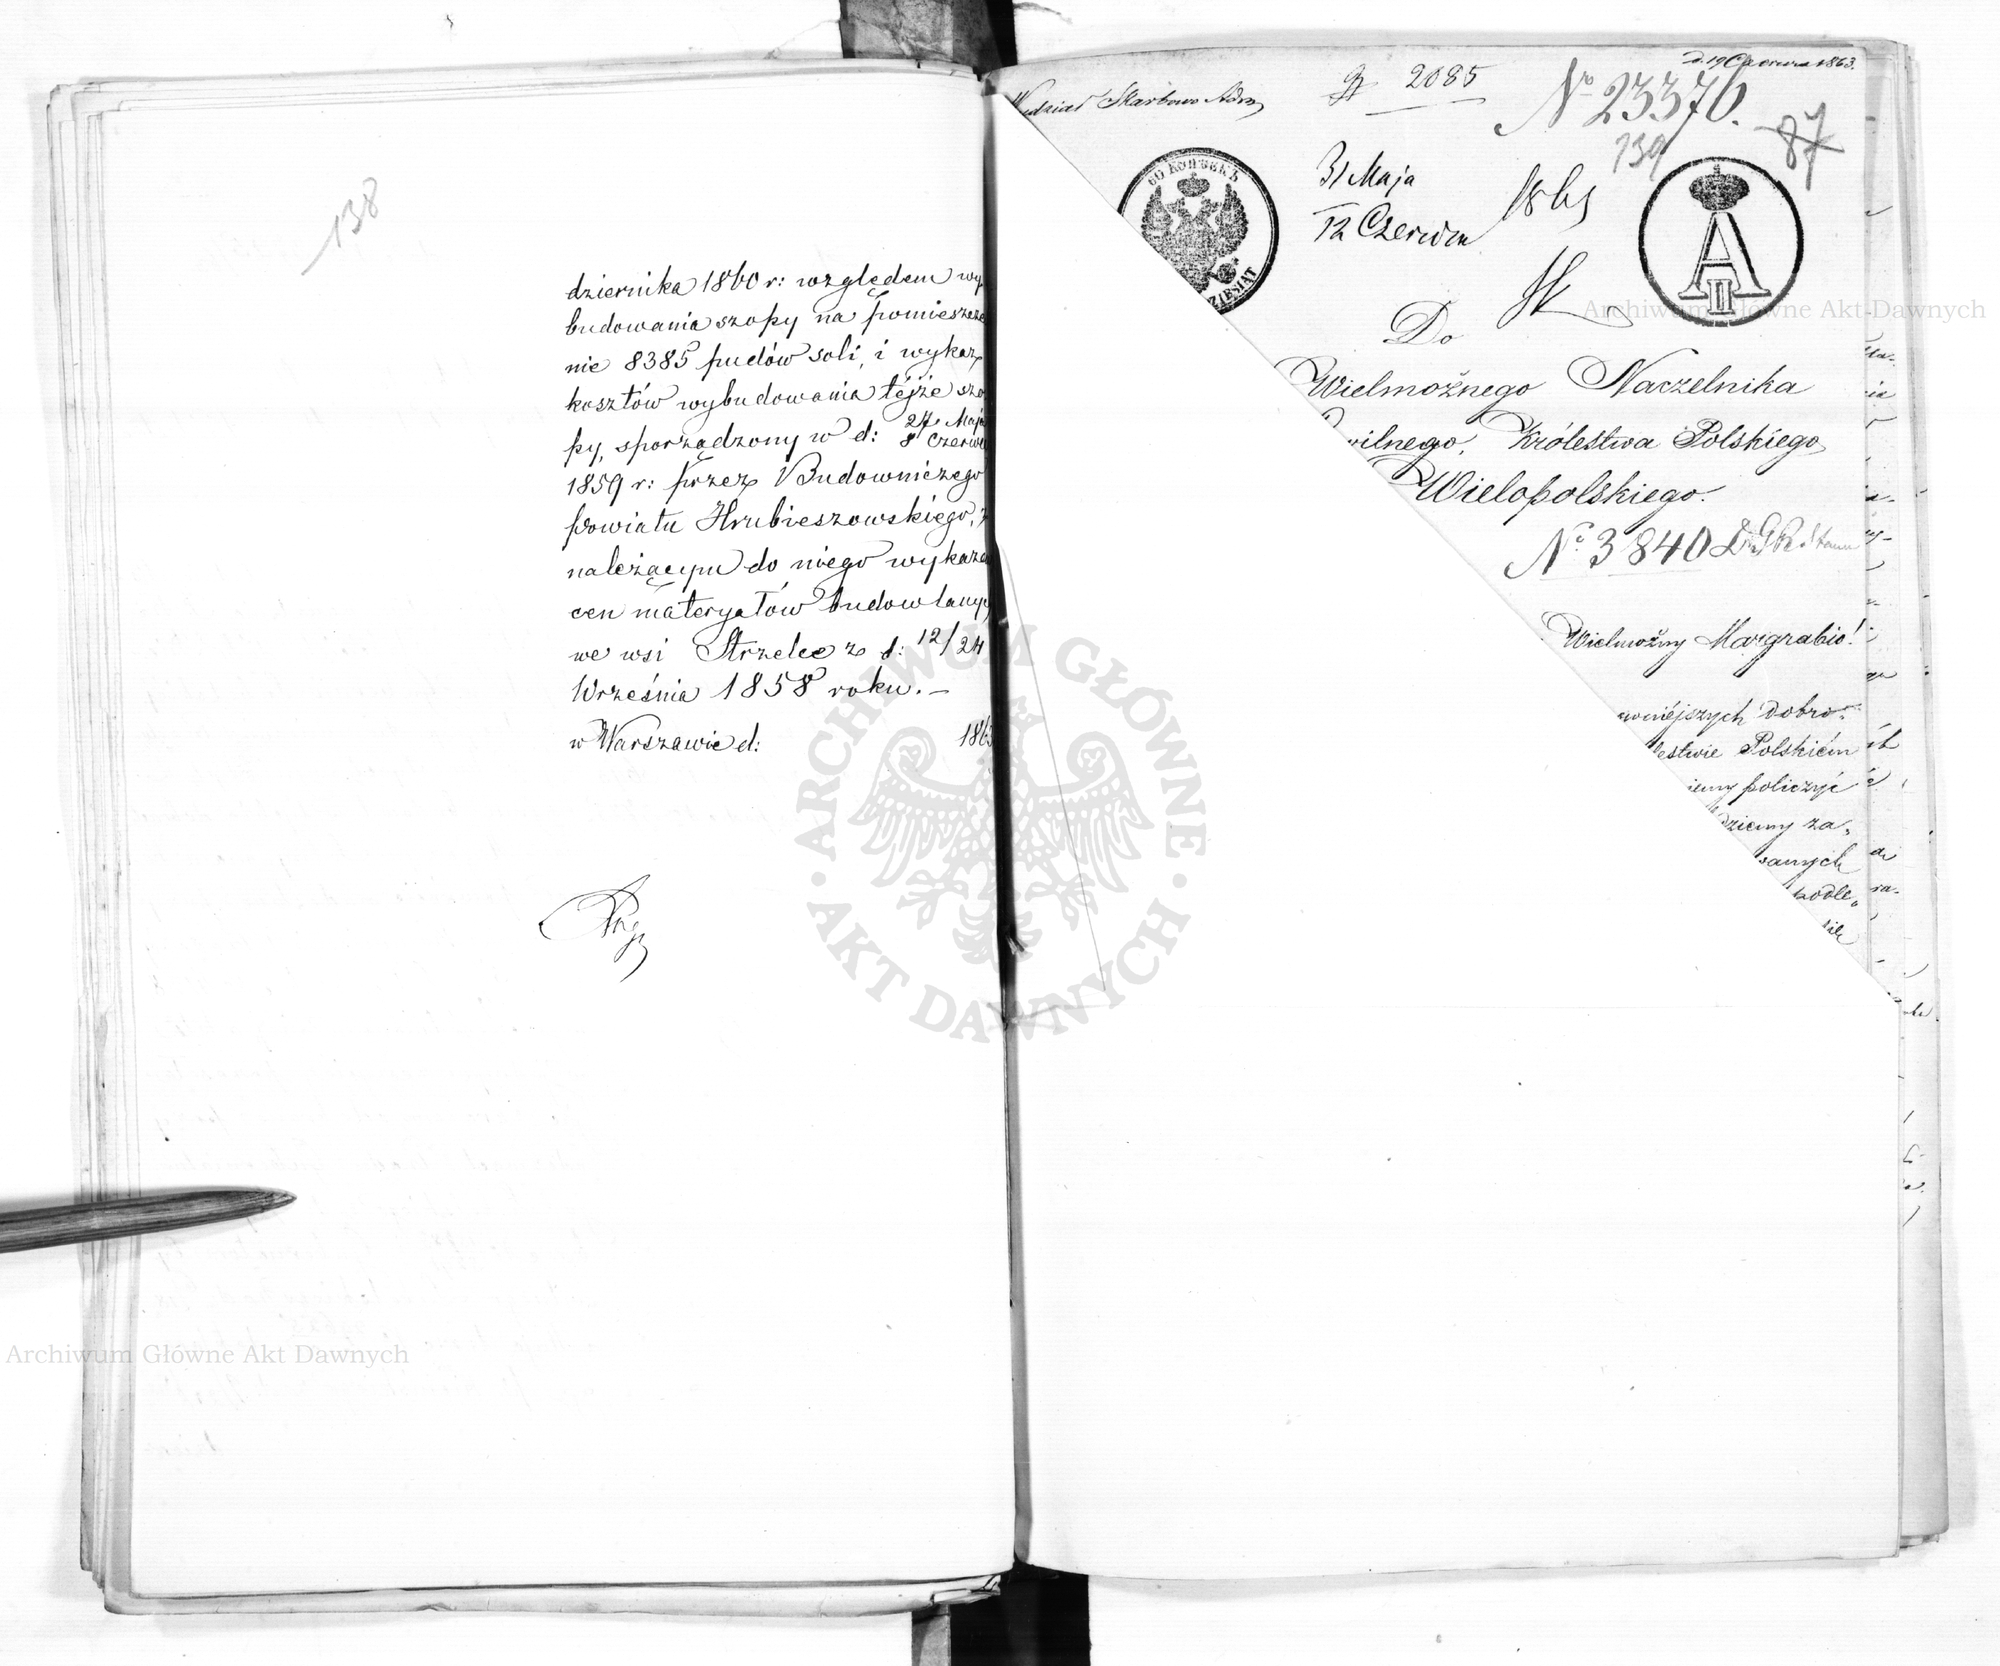 138
dziernika 1860 r: względem wy
budowania szopy na pomieszcze
nie 8385 pudów soli, i wykaz
kosztów wybudowania téjże szo
py, sporządzony w d: 27 Maja / 8 Czerwca
1859 r: przez Budowniczego
Powiatu Hrubieszowskiego, z
należącym do niego wykazem
cen materyałów budowlanych
we wsi Strzelce z d: 12/24
Września 1858 roku. –
w Warszawie d: 186
d. 19 Czerwca 1863.
Wydział Skarbowo Adm
2085
No 23376.
139
87
60 КОПѢЕКЪ
ZIESIĄT
31 Maja
12 Czerwca
1863
A
II
Do
Wielmożnego Naczelnika
wilnego, Królestwa Polskiego
Wielopolskiego.
No 3840
Wielmożny Margrabio!
awniéjszych dobro-
lestwie Polskiém
iemy policzyć
dziemy za-
samych
podle-
Archiwum Główne Akt Dawnych
ARCHIWUM GŁÓWNE · AKT DAWNYCH ·
Archiwum Główne Akt Dawnych